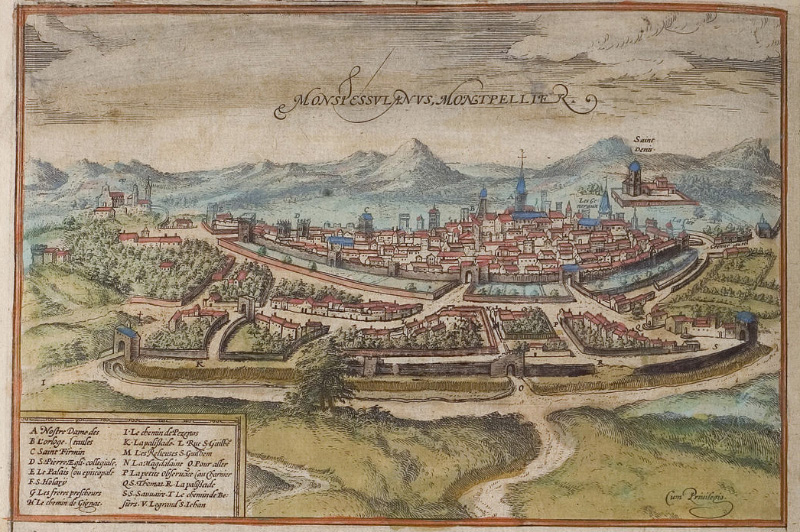 MONSPESSVLANVS, MONTPELLIER.
Saint
Denis
A Nostre Dame des
B L'orloge. taules
C Saint Firmin
D S. Pierre Egli. collegiale.
E Le Palais ou episcopale
F S. Holary
G Les freres prescheurs
H Le chemin de Gignac.
I Le chemin de Pezenas
K La pallisade. L Rue S. Guilhē
M Les Relieuses S. Guilhem
N La Magdalaine O Pour aller
P La petite Observāce
Q S. Thomas. R La pallisade
SS. Sauvaire. T Le chemin de Be-
siers. V Logrand S. Iehan
Cum Privilegio
I
K
O
R
S